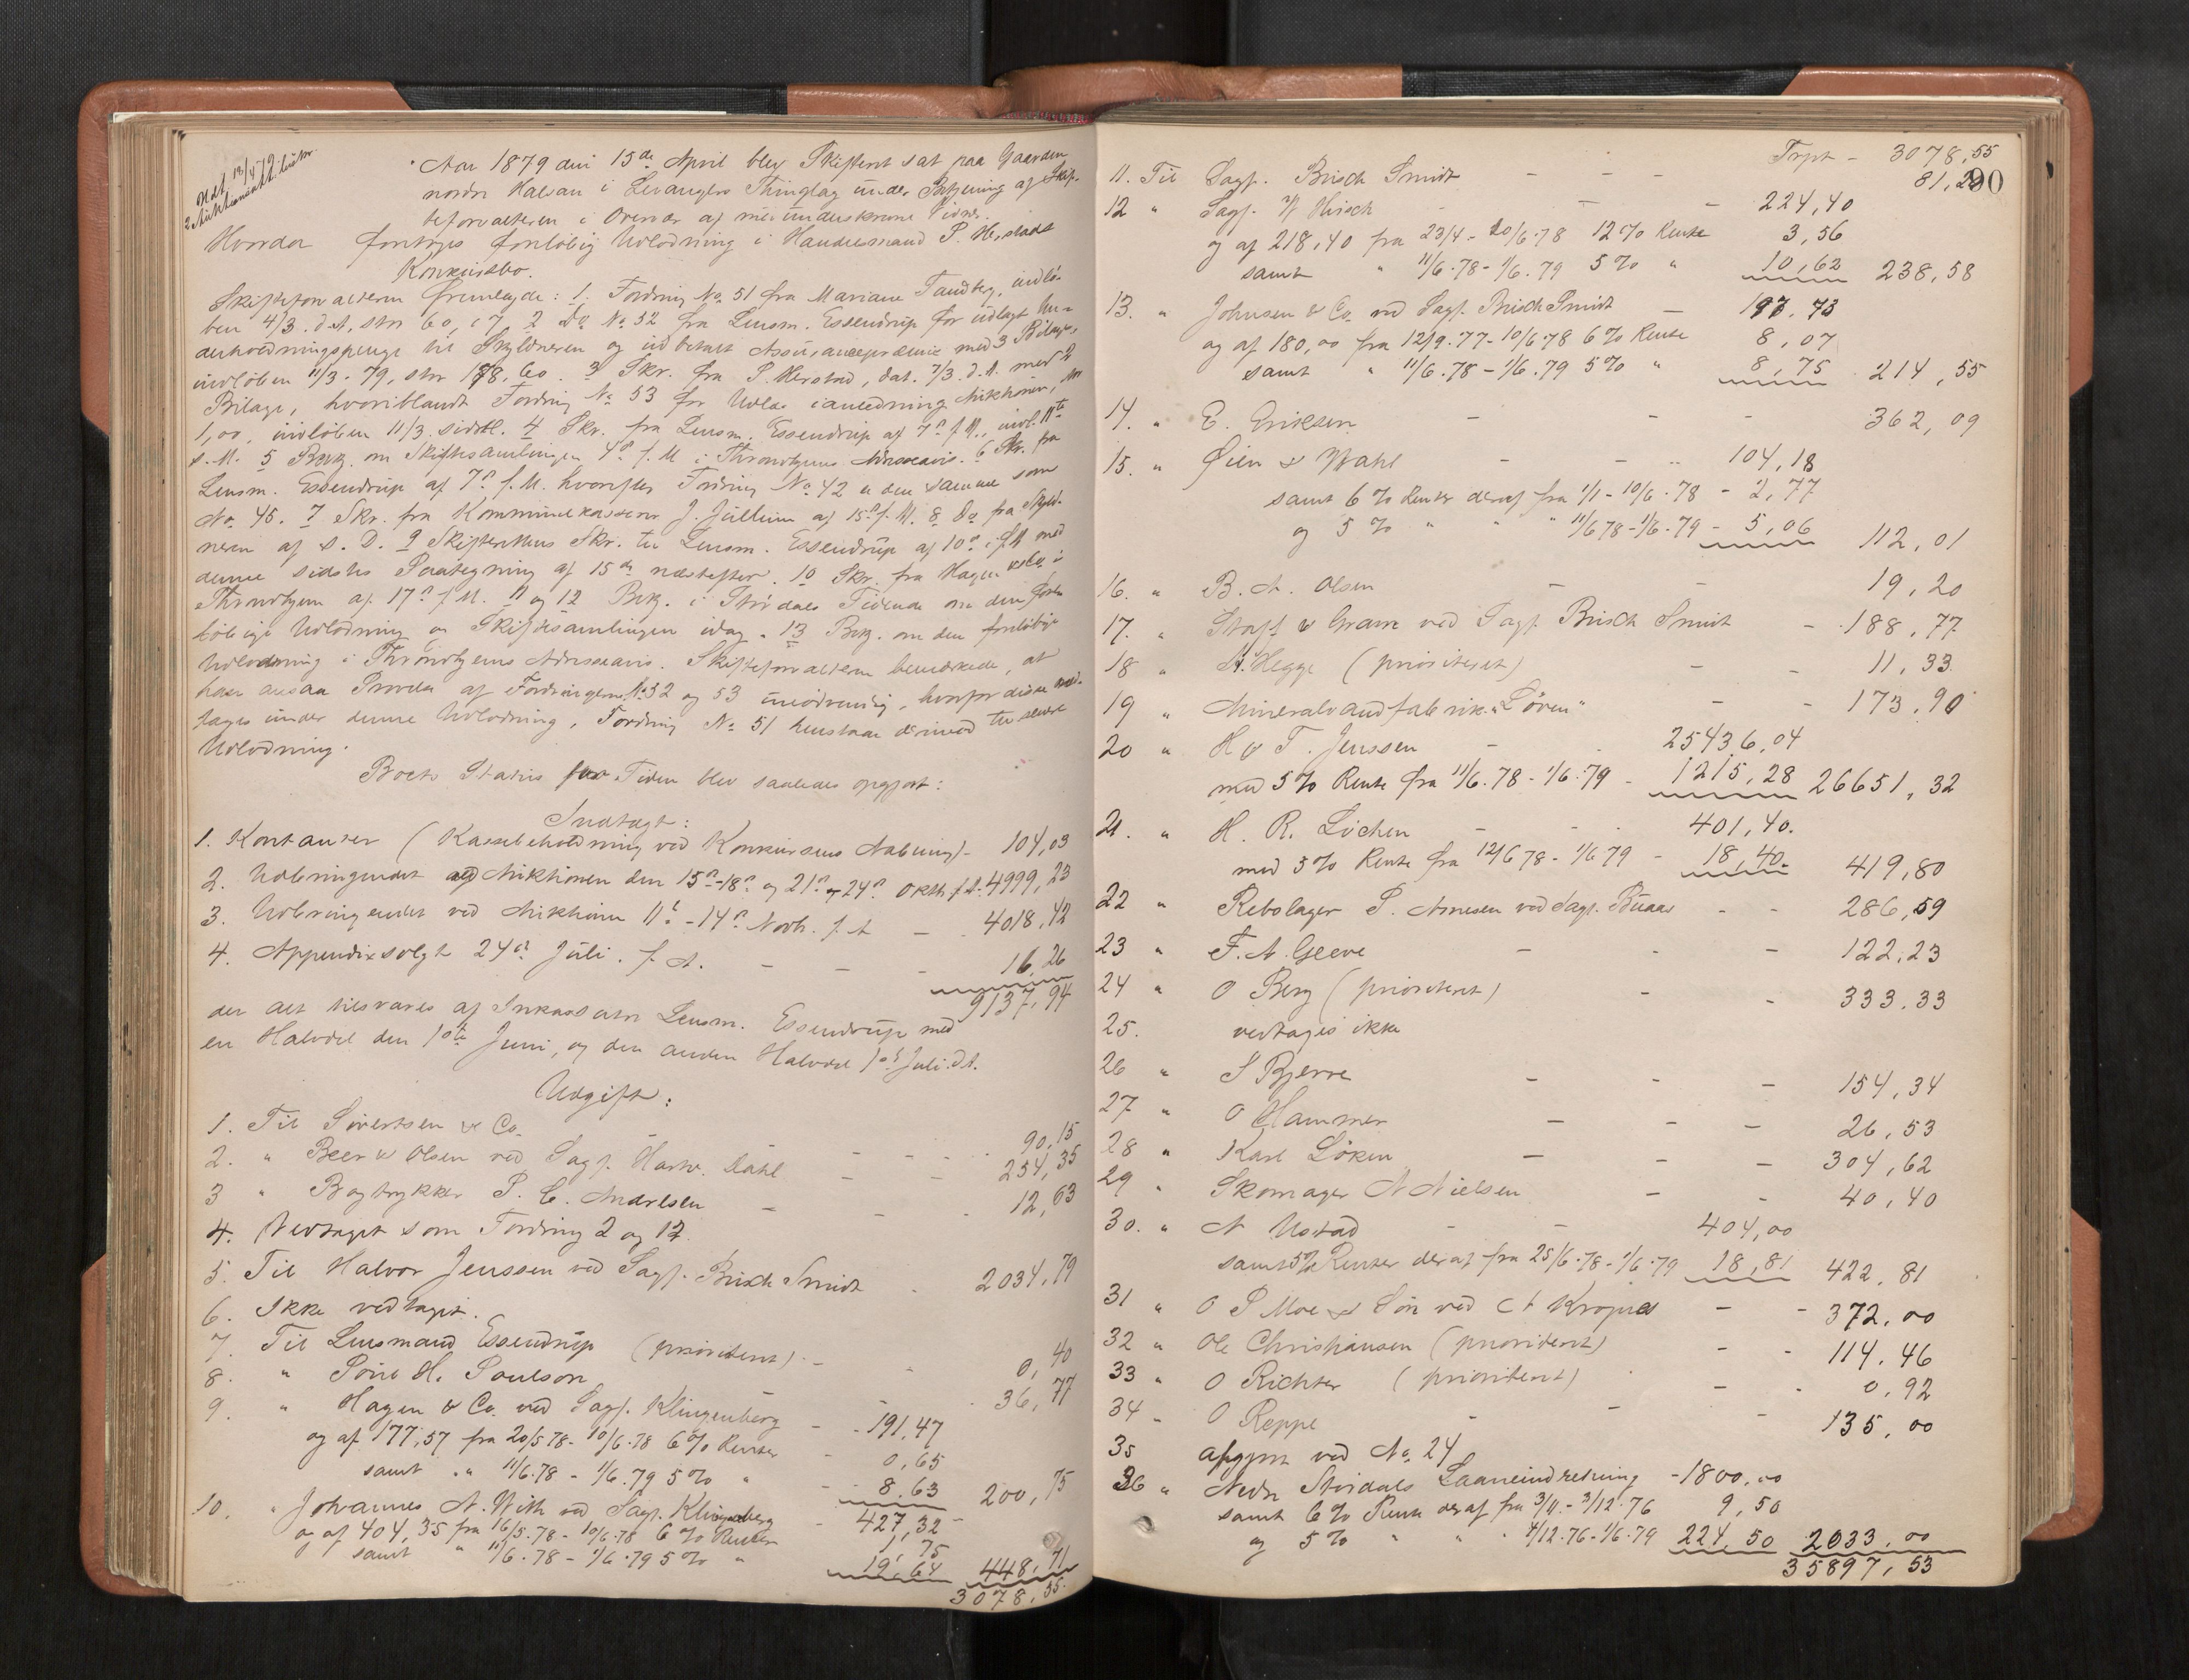 Udt. 13/4 79.
2 Auktionsakt. 
Aar 1879 den 15de April blev Skifteret sat paa Gaarden
nordre Halsan i Levangers Thinglag under Betjening af Skif-
teforvalteren i Overvær af medunderskrevne Vidner.
Hvorda foretoges foreløbig Udlodning i Handelsmand P. Herstads
Konkursbo.
Skifteforvalteren fremlagde: 1. Fordring No. 51 fra Mariane Tandberg, indlø-
ben 4/3. d. A., stor 60,17 2 Do No. 32 fra Lensm. Essendrup for udlagt Un-
derholdningspenge til Skyldneren og udbetalt Assurancepræmie med 3 Bilage,
indløben 11/3. 79, stor 188,60. 3 Skr. fra P. Herstad, dat. 7/3. d. A. med 2
Bilage, hvoriblandt Fordring No. 53 for Udlæg i anledning Auktionen, stor
1,00, indløben 11/3. sidstl. 4 Skr. fra Lensm. Essendrup af 7de f. M., indl. 11te
s. M. 5 Bekj. om Skiftesamlingen 4de f. M i Throndhjems Adresseavis. 6 Skr. fra
Lensm. Essendrup af 7de f. M. hvorefter Fordring No. 42 er den samme som
No. 45. 7 Skr. fra Kommunekasserer J. Jullum af 15de f. M. 8 Do fra Skyld-
neren af s. D. 9 Skifterettens Skr. til Lensm. Essendrup af 10de i f. M med
dennes sidstes Paategning af 15de næstefter. 10 Skr. fra Hagen & Co i
Throndhjem af 17de f. M. 11 og 12 Bekj. i Stjørdals Tidende om den fore-
løbige Udlodning og Skiftesamlingen idag. 13 Bekj. om den foreløbige
Udlodning i Throndhjems Adresseavis. Skifteforvalteren bemærkede, at
han ansaa Prøvelse af Fordringerne No. 32 og 53 unødvendig, hvorfor disse med-
tages under denne Udlodning, Fordring No. 51 henstaar derimod til senere
Udlodning.
Boets Status for Tiden blev saaledes opgjort:
Indtægt:
1. Kontanter (Kassebeholdning ved Konkursens Aabning) - 104,03
2. Udbringendet ved Auktionen den 15de-18de og 21de-24de Oktbr. f. A. 4999,23
3. Udbringendet ved Auktionen 11te-14de Novb. f. A - 4018,42
4. Appendixsolgt 24de Juli. f. A. - - - 16,26
9137,94
der alt tilsvares af Inkassator Lensm. Essendrup med
en Halvdel den 1ste Juni, og den anden Halvdel 1ste Juli d. A.
Udgift:
1. Til Sivertsen & Co. - - - - 90,15
2. " Beer & Olsen ved Sagf. Hartv. Dahl - - 254,35
3 " Bogtrykker P. C. Andersen - - - 12,63
4. Vedtaget som Fordring 2 og 12.
5. Til Halvor Jenssen ved Sagf. Brisch Smidt - 2034,79
6. Ikke vedtaget.
7. Til Lensmand Essendrup (prioriteret) - - 0,40
8. " Sørine H. Poulson - - 36,77
9. " Hagen & Co. ved Sagf. Klingenberg - 191,47
og af 177,57 fra 20/5 78 - 10/6 78 6 % Renter - 0,65
samt " 11/6. 78 - 1/6. 79 5 % " - 8,63 200,75
10. " Johannes N. With ved Sagf. Klingenberg - 427,32
og af 404,35 fra 16/5. 78 - 10/6 78 6 % Renter 1,75
samt " 11/6. 78 - 1/6. 79 5 % " 19,64 448,71
3078,55.
90
Trpt - 3078,55
11. Til Sagf. Brisch Smidt - - - 81,20
12 " Sagf. W Hirsch - - 224,40
og af 218,40 fra 23/4 - 10/6 78 12 % Rente 3,56
samt " 11/6. 78 - 1/6. 79 5 % " 10,62 238,58
13. " Johnsen & Co. ved Sagf. Brisch Smidt - 197,73
og af 180,00 fra 12/9. 77 - 10/6 78 6 % Rente 8,07
samt " 11/6. 78 - 1/6. 79 5 % " 8,75 214,55
14. " E. Eriksen - - - 362,09
15. " Øien & Wahl - - 104,18
samt 6 % Renter deraf fra 1/1 - 10/6. 78 - 2,77
og 5 % " " " 11/6 78 - 1/6. 79 - 5,06 112,01
16. " B. A. Olsen - - 19,20
17. " Staff & Gram ved Sagf. Brisch Smidt - 188,77
18 " A. Hegge (prioriteret) - - 11,33
19 " Mineralvandfabrik. "Løven" - - 173,90
20 " H & F. Jenssen - - 25436,04
med 5 % Rente fra 11/6. 78 - 1/6. 79 - 1215,28 26651,32
21. " H. R. Lochen - - 401,40.
med 5 % Rente fra 12/6 78 - 1/6 79 - 18,40. 419,80
22 " Rebslager P. Arnesen ved Sagf. Buaas - - 286,59
23 " F. A. Greve - - - 122,23
24 " O Berg (prioriteret) - - 333,33
25. vedtages ikke
26 " S Bjerve - - - 154,34
27 " O Hammer - - - 26,53
28 " Karl Løken - - - 304,62
29 " Skomager N Nielsen - - 40,40
30. " A Ustad - - 404,00
samt 5 % Renter deraf fra 25/6. 78 - 1/6. 79 18,81 422,81
31 " O P Moe & Søn ved A Krognes - - 372,00
32 " Ole Christiansen (prioriteret) - - 114,46
33 " O Richter (prioriteret) - - 0,92
34 " O Reppe - - - 135,00
35 afgjort ved No. 24
36 " Nedre Stjørdals Laaneindretning - 1800,00
samt 6 % Rente deraf fra 3/11. - 3/12. 76 9,50
og 5 % " " " 4/12. 76 - 1/6. 79 224,50 2033,00
35897,53